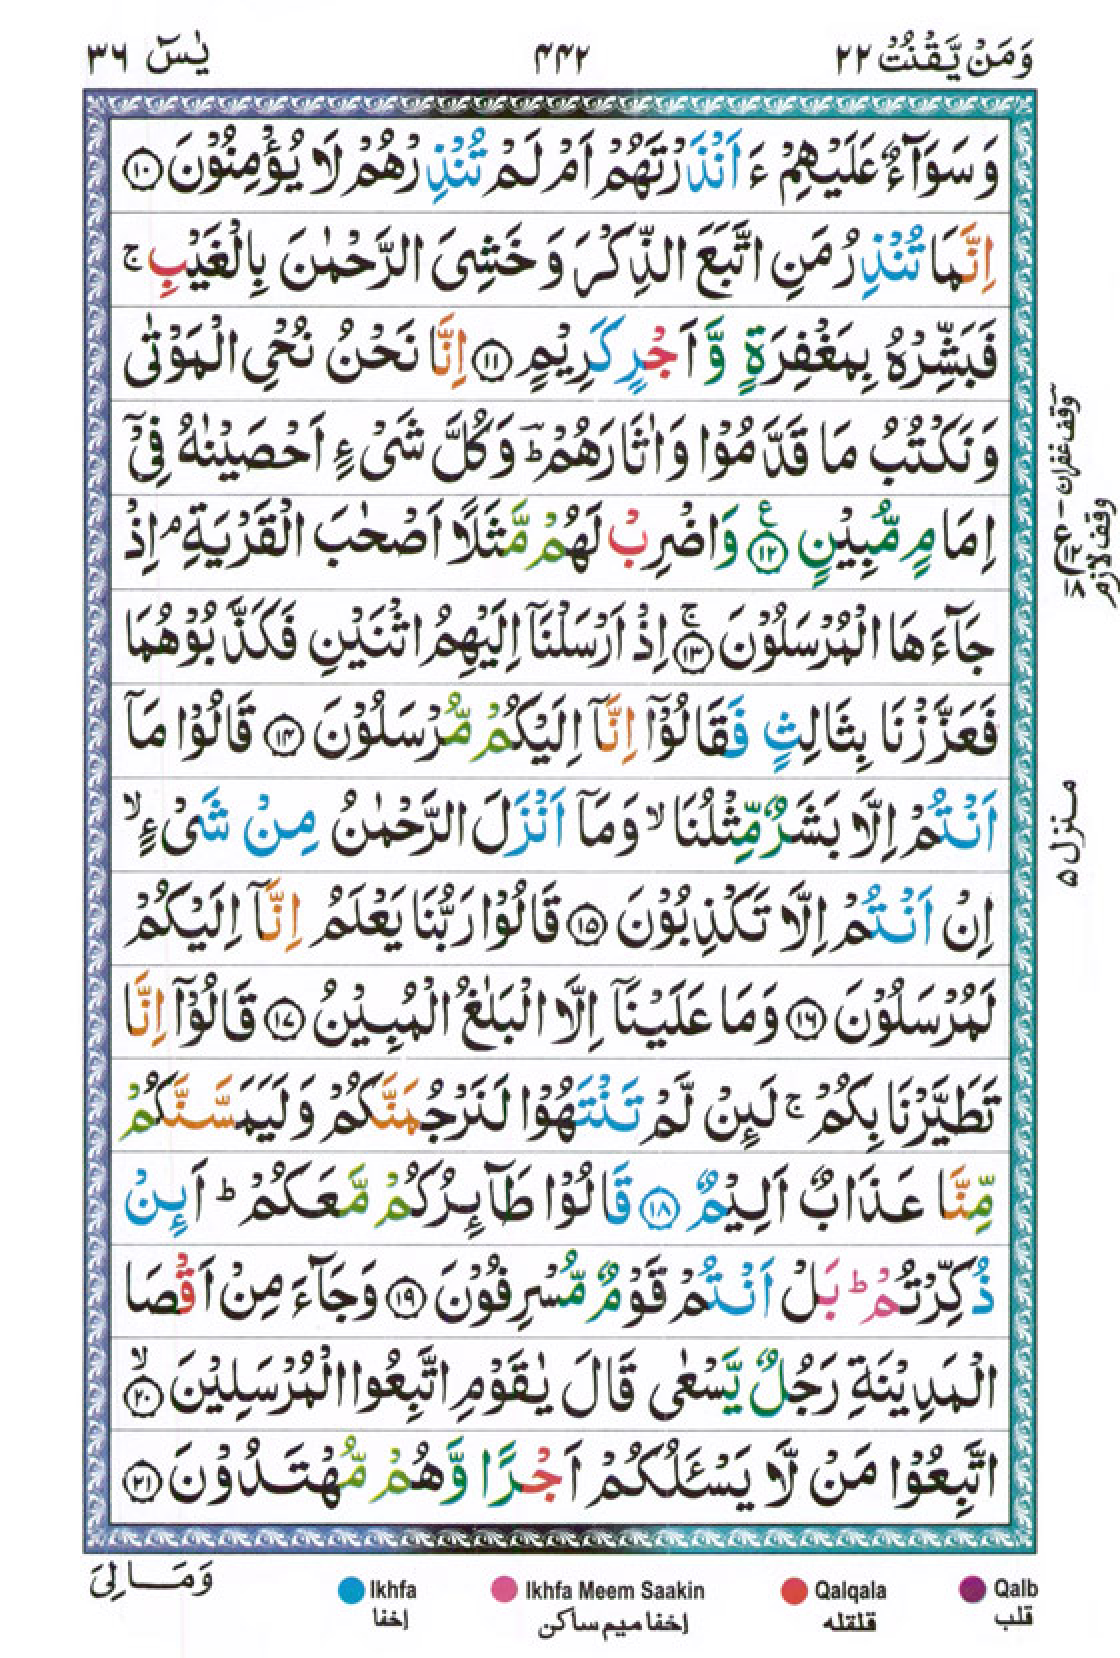 وَمَنْ يَّقْنُتْ ٢٢
٤٤٢
يٰسٓ ٣٦
وَسَوَآءٌ عَلَيْهِمْ ءَاَنْذَرْتَهُمْ اَمْ لَمْ تُنْذِرْهُمْ لَا يُؤْمِنُوْنَ ⑩
اِنَّمَا تُنْذِرُ مَنِ اتَّبَعَ الذِّكْرَ وَخَشِىَ الرَّحْمٰنَ بِالْغَيْبِ ۚ
فَبَشِّرْهُ بِمَغْفِرَةٍ وَّاَجْرٍ كَرِيْمٍ ⑪ اِنَّا نَحْنُ نُحْىِ الْمَوْتٰى
وَنَكْتُبُ مَا قَدَّمُوْا وَاٰثَارَهُمْ ؕ وَكُلَّ شَىْءٍ اَحْصَيْنٰهُ فِىْٓ
اِمَامٍ مُّبِيْنٍ ⑫ ع وَاضْرِبْ لَهُمْ مَّثَلًا اَصْحٰبَ الْقَرْيَةِ ۘ اِذْ
جَآءَهَا الْمُرْسَلُوْنَ ⑬ ۚ اِذْ اَرْسَلْنَآ اِلَيْهِمُ اثْنَيْنِ فَكَذَّبُوْهُمَا
فَعَزَّزْنَا بِثَالِثٍ فَقَالُوْٓا اِنَّآ اِلَيْكُمْ مُّرْسَلُوْنَ ⑭ قَالُوْا مَآ
اَنْتُمْ اِلَّا بَشَرٌ مِّثْلُنَا ۙ وَمَآ اَنْزَلَ الرَّحْمٰنُ مِنْ شَىْءٍ ۙ
اِنْ اَنْتُمْ اِلَّا تَكْذِبُوْنَ ⑮ قَالُوْا رَبُّنَا يَعْلَمُ اِنَّآ اِلَيْكُمْ
لَمُرْسَلُوْنَ ⑯ وَمَا عَلَيْنَآ اِلَّا الْبَلٰغُ الْمُبِيْنُ ⑰ قَالُوْٓا اِنَّا
تَطَيَّرْنَا بِكُمْ ۚ لَئِنْ لَّمْ تَنْتَهُوْا لَنَرْجُمَنَّكُمْ وَلَيَمَسَّنَّكُمْ
مِّنَّا عَذَابٌ اَلِيْمٌ ⑱ قَالُوْا طَآئِرُكُمْ مَّعَكُمْ ؕ اَئِنْ
ذُكِّرْتُمْ ؕ بَلْ اَنْتُمْ قَوْمٌ مُّسْرِفُوْنَ ⑲ وَجَآءَ مِنْ اَقْصَا
الْمَدِيْنَةِ رَجُلٌ يَّسْعٰى قَالَ يٰقَوْمِ اتَّبِعُوا الْمُرْسَلِيْنَ ⑳ ۙ
اتَّبِعُوْا مَنْ لَّا يَسْئَلُكُمْ اَجْرًا وَّهُمْ مُّهْتَدُوْنَ ㉑
وقف غفران
وقف لازم
منزل ۵
وَمَا لِىَ
Ikhfa
إخفا
Ikhfa Meem Saakin
إخفا ميم ساكن
Qalqala
قلقله
Qalb
قلب